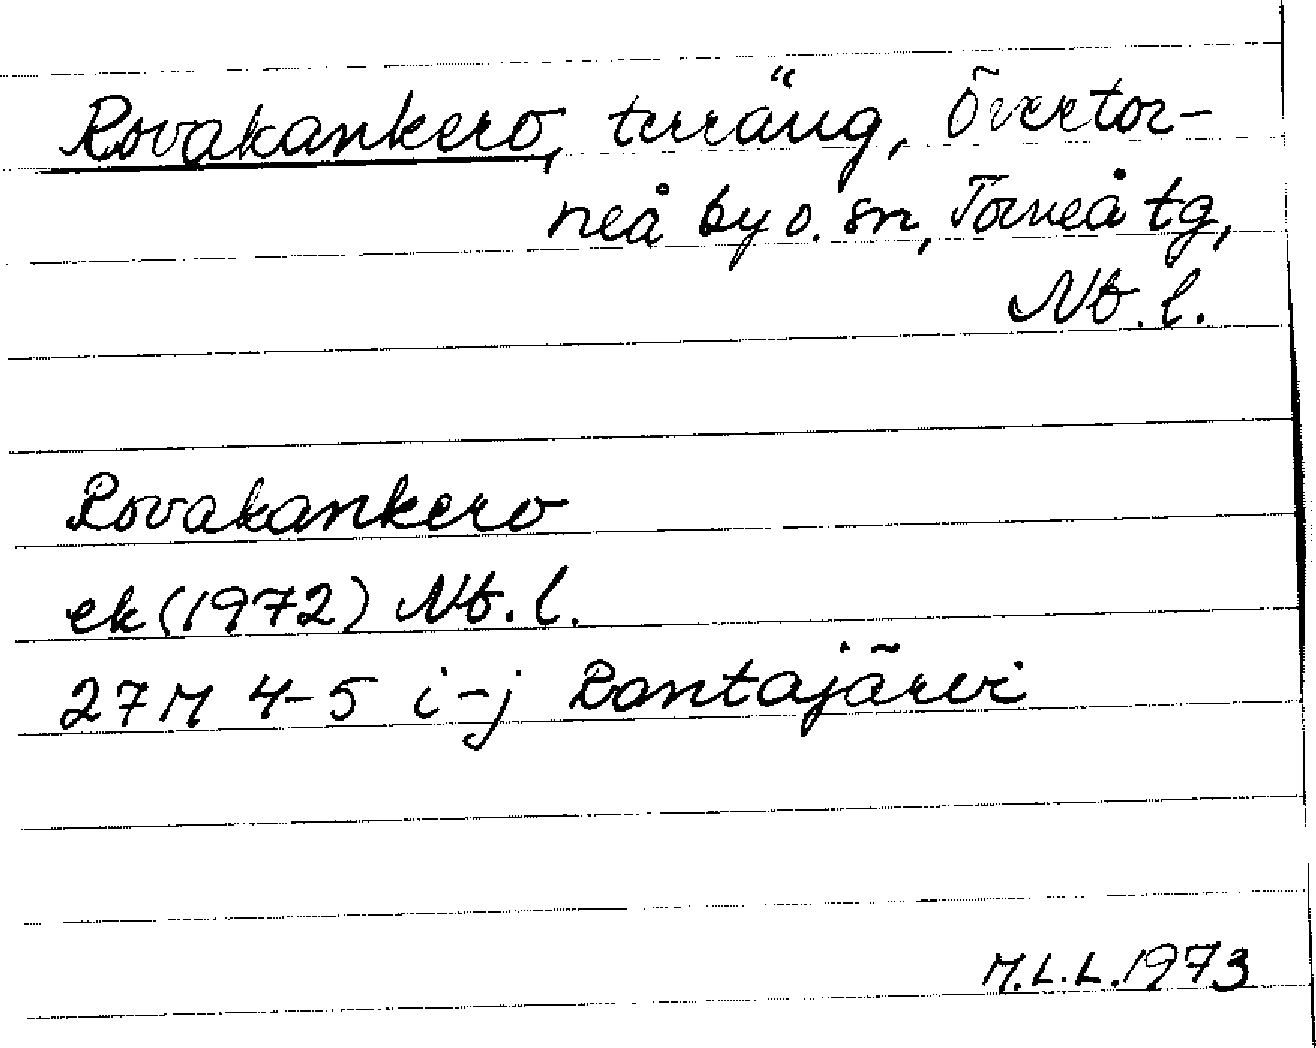 Rovakankero, terräng, Övertor-
neå by o. sn, Torneå tg,
Nb. l.
Rovakankero
ek (1972) Nb. l.
27 M 4-5 i-j Rantajärvi
M.L.L. 1973